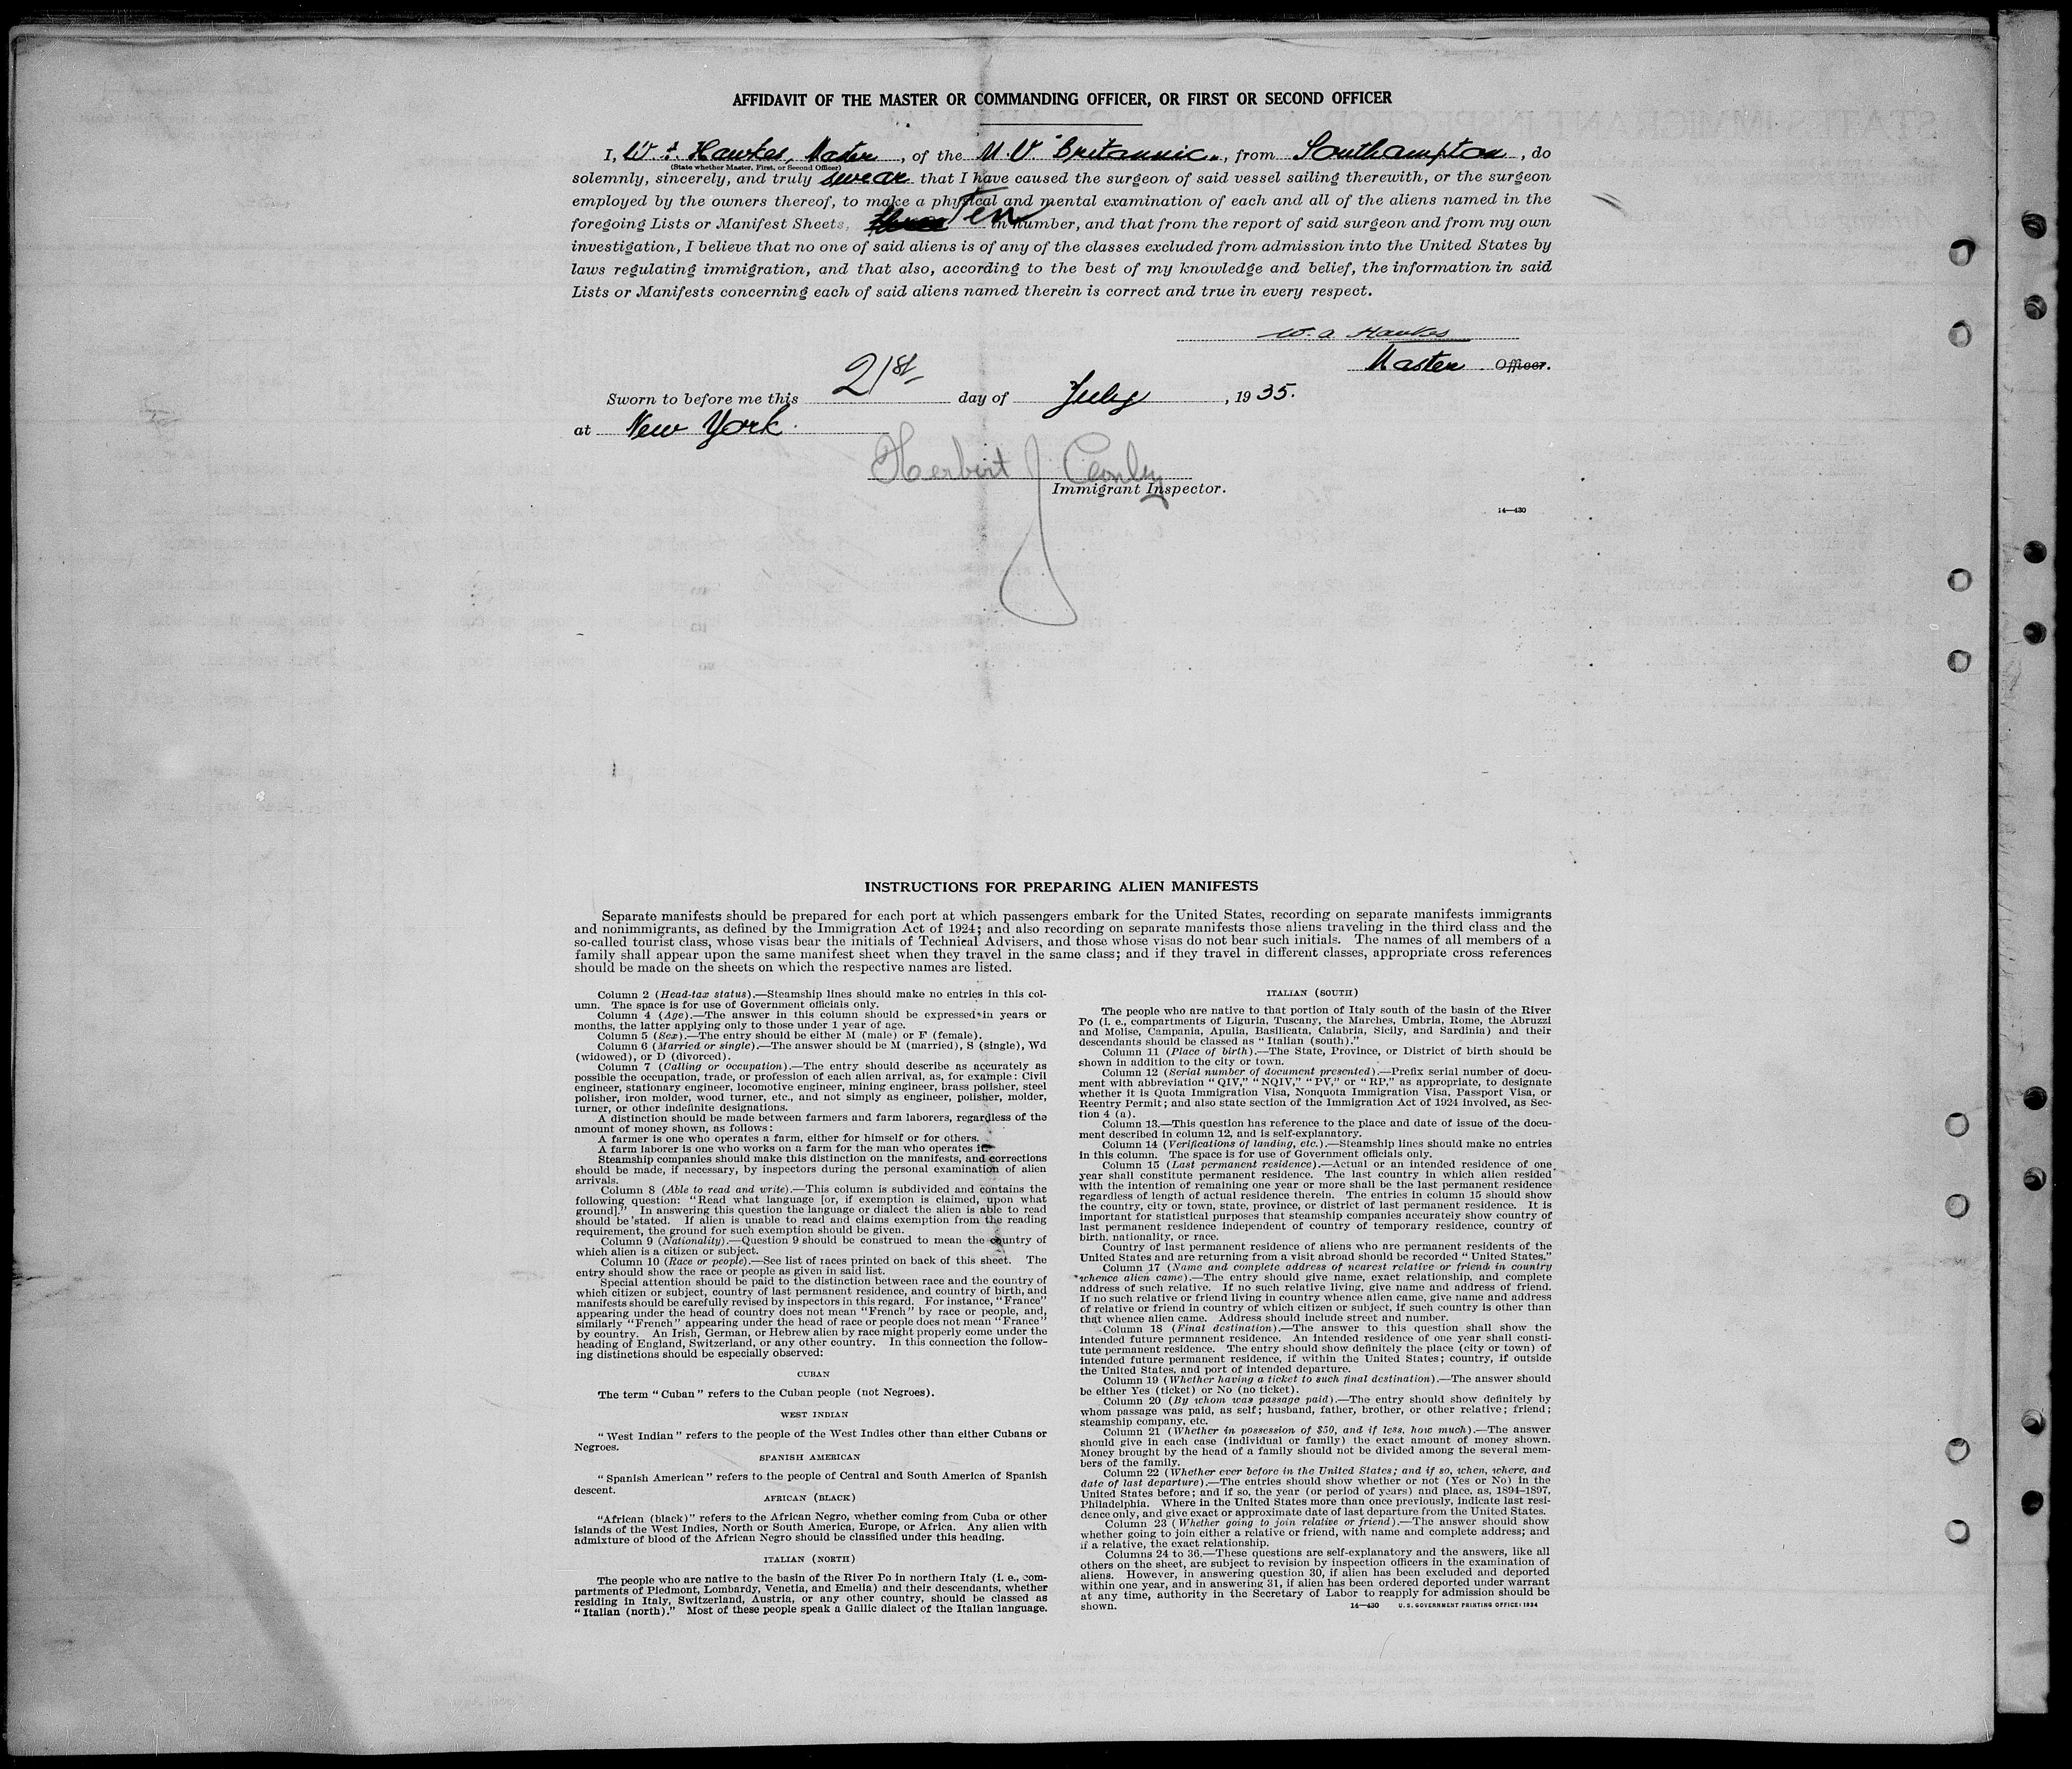 AFFIDAVIT OF THE MASTER OR COMMANDING OFFICER, OR FIRST OR SECOND OFFICER
I, W. A. Hawkes, Master, of the M.V. "Britannic", from Southampton, do
(State whether Master, First, or Second Officer)
solemnly, sincerely, and truly swear that I have caused the surgeon of said vessel sailing therewith, or the surgeon
employed by the owners thereof, to make a physical and mental examination of each and all of the aliens named in the
foregoing Lists or Manifest Sheets, Ten in number, and that from the report of said surgeon and from my own
investigation, I believe that no one of said aliens is of any of the classes excluded from admission into the United States by
laws regulating immigration, and that also, according to the best of my knowledge and belief, the information in said
Lists or Manifests concerning each of said aliens named therein is correct and true in every respect.
W. A. Hawkes
Master Officer.
Sworn to before me this 21st day of July, 1935.
at New York.
Herbert J
Immigrant Inspector.
14—430
INSTRUCTIONS FOR PREPARING ALIEN MANIFESTS
Separate manifests should be prepared for each port at which passengers embark for the United States, recording on separate manifests immigrants
and nonimmigrants, as defined by the Immigration Act of 1924; and also recording on separate manifests those aliens traveling in the third class and the
so-called tourist class, whose visas bear the initials of Technical Advisers, and those whose visas do not bear such initials. The names of all members of a
family shall appear upon the same manifest sheet when they travel in the same class; and if they travel in different classes, appropriate cross references
should be made on the sheets on which the respective names are listed.
Column 2 (Head-tax status).—Steamship lines should make no entries in this col-
umn. The space is for use of Government officials only.
Column 4 (Age).—The answer in this column should be expressed in years or
months, the latter applying only to those under 1 year of age.
Column 5 (Sex).—The entry should be either M (male) or F (female).
Column 6 (Married or single).—The answer should be M (married), S (single), Wd
(widowed), or D (divorced).
Column 7 (Calling or occupation).—The entry should describe as accurately as
possible the occupation, trade, or profession of each alien arrival, as, for example: Civil
engineer, stationary engineer, locomotive engineer, mining engineer, brass polisher, steel
polisher, iron molder, wood turner, etc., and not simply as engineer, polisher, molder,
turner, or other indefinite designations.
A distinction should be made between farmers and farm laborers, regardless of the
amount of money shown, as follows:
A farmer is one who operates a farm, either for himself or for others.
A farm laborer is one who works on a farm for the man who operates it.
Steamship companies should make this distinction on the manifests, and corrections
should be made, if necessary, by inspectors during the personal examination of alien
arrivals.
Column 8 (Able to read and write).—This column is subdivided and contains the
following question: "Read what language [or, if exemption is claimed, upon what
ground]." In answering this question the language or dialect the alien is able to read
should be stated. If alien is unable to read and claims exemption from the reading
requirement, the ground for such exemption should be given.
Column 9 (Nationality).—Question 9 should be construed to mean the country of
which alien is a citizen or subject.
Column 10 (Race or people).—See list of races printed on back of this sheet. The
entry should show the race or people as given in said list.
Special attention should be paid to the distinction between race and the country of
which citizen or subject, country of last permanent residence, and country of birth, and
manifests should be carefully revised by inspectors in this regard. For instance, "France"
appearing under the head of country does not mean "French" by race or people, and,
similarly "French" appearing under the head of race or people does not mean "France"
by country. An Irish, German, or Hebrew alien by race might properly come under the
heading of England, Switzerland, or any other country. In this connection the follow-
ing distinctions should be especially observed:
CUBAN
The term "Cuban" refers to the Cuban people (not Negroes).
WEST INDIAN
"West Indian" refers to the people of the West Indies other than either Cubans or
Negroes.
SPANISH AMERICAN
"Spanish American" refers to the people of Central and South America of Spanish
descent.
AFRICAN (BLACK)
"African (black)" refers to the African Negro, whether coming from Cuba or other
islands of the West Indies, North or South America, Europe, or Africa. Any alien with
admixture of blood of the African Negro should be classified under this heading.
ITALIAN (NORTH)
The people who are native to the basin of the River Po in northern Italy (i. e., com-
partments of Piedmont, Lombardy, Venetia, and Emelia) and their descendants, whether
residing in Italy, Switzerland, Austria, or any other country, should be classed as
"Italian (north)." Most of these people speak a Gallic dialect of the Italian language.
ITALIAN (SOUTH)
The people who are native to that portion of Italy south of the basin of the River
Po (i. e., compartments of Liguria, Tuscany, the Marches, Umbria, Rome, the Abruzzi
and Molise, Campania, Apulia, Basilicata, Calabria, Sicily, and Sardinia) and their
descendants should be classed as "Italian (south)."
Column 11 (Place of birth).—The State, Province, or District of birth should be
shown in addition to the city or town.
Column 12 (Serial number of document presented).—Prefix serial number of docu-
ment with abbreviation "QIV," "NQIV," "PV," or "RP," as appropriate, to designate
whether it is Quota Immigration Visa, Nonquota Immigration Visa, Passport Visa, or
Reentry Permit; and also state section of the Immigration Act of 1924 involved, as Sec-
tion 4 (a).
Column 13.—This question has reference to the place and date of issue of the docu-
ment described in column 12, and is self-explanatory.
Column 14 (Verifications of landing, etc.).—Steamship lines should make no entries
in this column. The space is for use of Government officials only.
Column 15 (Last permanent residence).—Actual or an intended residence of one
year shall constitute permanent residence. The last country in which alien resided
with the intention of remaining one year or more shall be the last permanent residence
regardless of length of actual residence therein. The entries in column 15 should show
the country, city or town, state, province, or district of last permanent residence. It is
important for statistical purposes that steamship companies accurately show country of
last permanent residence independent of country of temporary residence, country of
birth, nationality, or race.
Country of last permanent residence of aliens who are permanent residents of the
United States and are returning from a visit abroad should be recorded "United States."
Column 17 (Name and complete address of nearest relative or friend in country
whence alien came).—The entry should give name, exact relationship, and complete
address of such relative. If no such relative living, give name and address of friend.
If no such relative or friend living in country whence alien came, give name and address
of relative or friend in country of which citizen or subject, if such country is other than
that whence alien came. Address should include street and number.
Column 18 (Final destination).—The answer to this question shall show the
intended future permanent residence. An intended residence of one year shall consti-
tute permanent residence. The entry should show definitely the place (city or town) of
intended future permanent residence, if within the United States; country, if outside
the United States, and port of intended departure.
Column 19 (Whether having a ticket to such final destination).—The answer should
be either Yes (ticket) or No (no ticket).
Column 20 (By whom was passage paid).—The entry should show definitely by
whom passage was paid, as self; husband, father, brother, or other relative; friend;
steamship company, etc.
Column 21 (Whether in possession of $50, and if less, how much).—The answer
should give in each case (individual or family) the exact amount of money shown.
Money brought by the head of a family should not be divided among the several mem-
bers of the family.
Column 22 (Whether ever before in the United States; and if so, when, where, and
date of last departure).—The entries should show whether or not (Yes or No) in the
United States before; and if so, the year (or period of years) and place, as, 1894–1897,
Philadelphia. Where in the United States more than once previously, indicate last resi-
dence only, and give exact or approximate date of last departure from the United States.
Column 23 (Whether going to join relative or friend).—The answer should show
whether going to join either a relative or friend, with name and complete address; and
if a relative, the exact relationship.
Columns 24 to 36.—These questions are self-explanatory and the answers, like all
others on the sheet, are subject to revision by inspection officers in the examination of
aliens. However, in answering question 30, if alien has been excluded and deported
within one year, and in answering 31, if alien has been ordered deported under warrant
at any time, authority in the Secretary of Labor to reapply for admission should be
shown.
14—430 U. S. GOVERNMENT PRINTING OFFICE: 1934